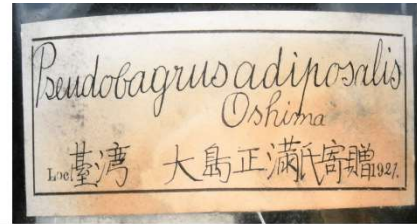 Pseudobagrus adiposalis
Oshima
Loc. 臺湾 大島正満氏寄贈 1927.